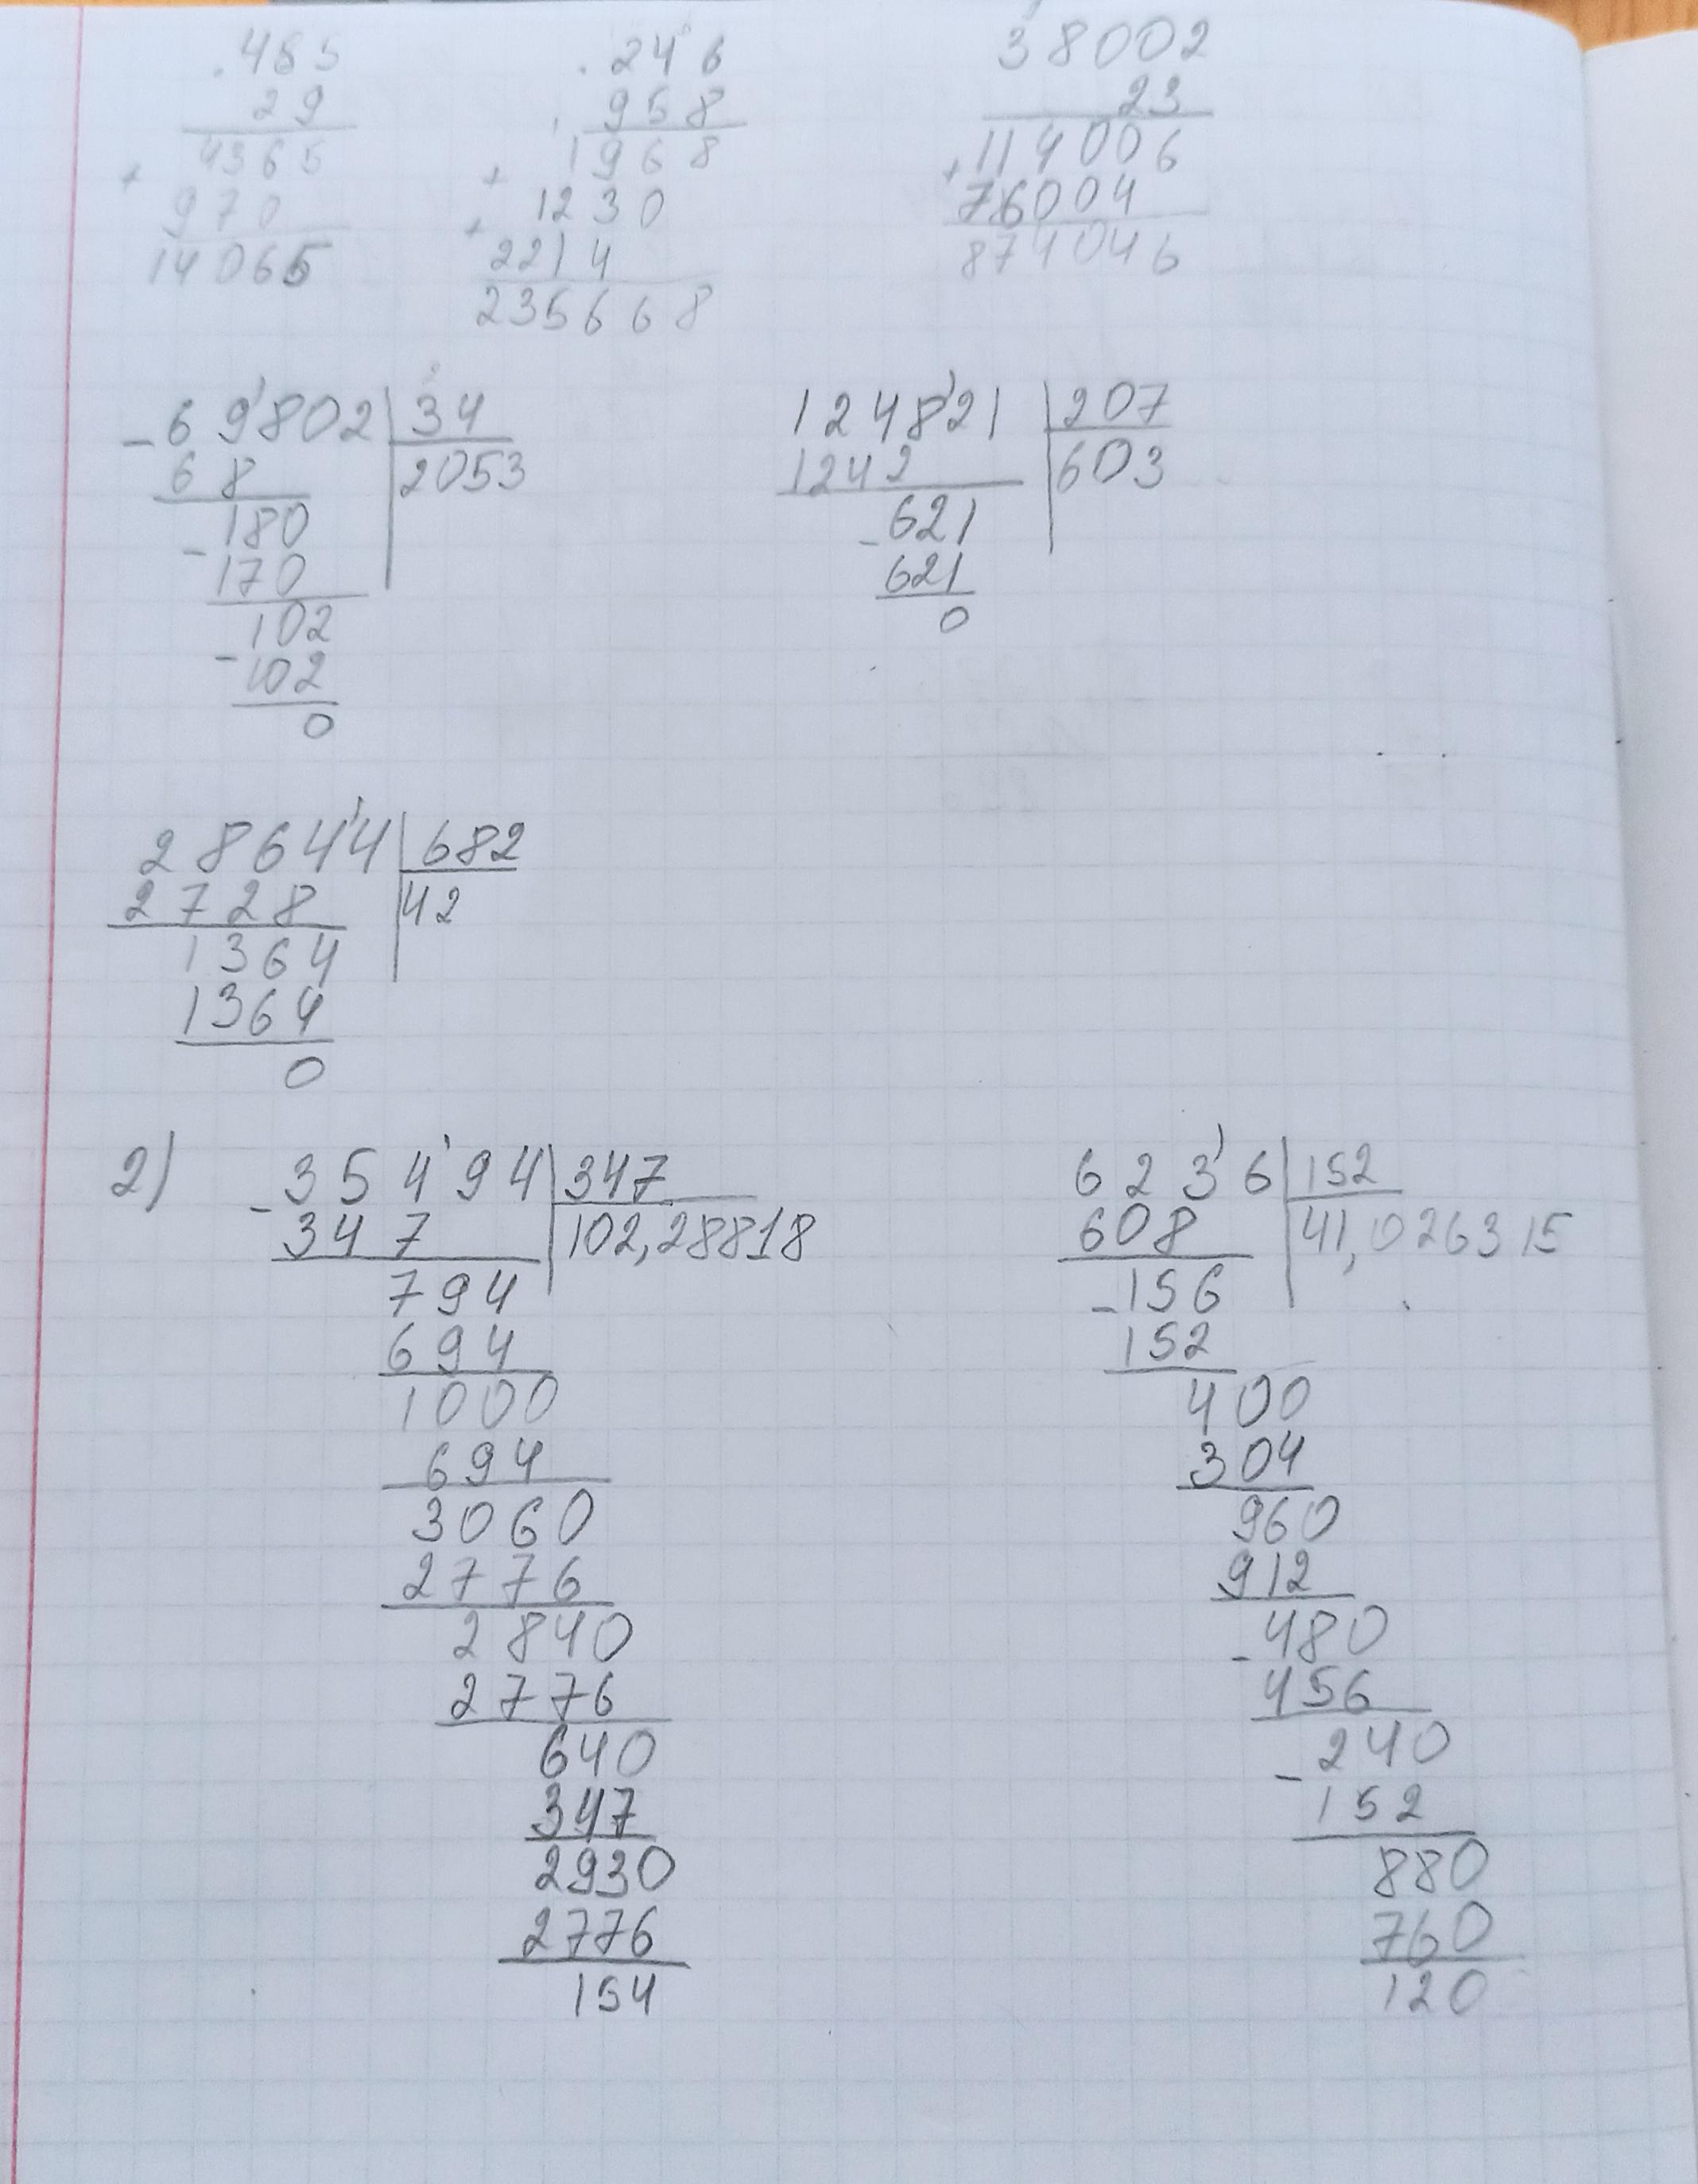 485
29
4365
+
970
14065
246
958
1968
+
1230
+
2214
235668
38002
23
114006
+
76004
874046
- 69802 | 34
68 | 2053
- 180
170
- 102
102
0
124821 | 207
1242 | 603
- 621
621
0
28644 | 682
2728 | 42
1364
1364
0
2)
- 35494 | 347
347 | 102,28818
794
694
1000
694
3060
2776
2840
2776
640
347
2930
2776
154
6236 | 152
608 | 41,026315
- 156
152
400
304
960
912
- 480
456
- 240
152
880
760
120